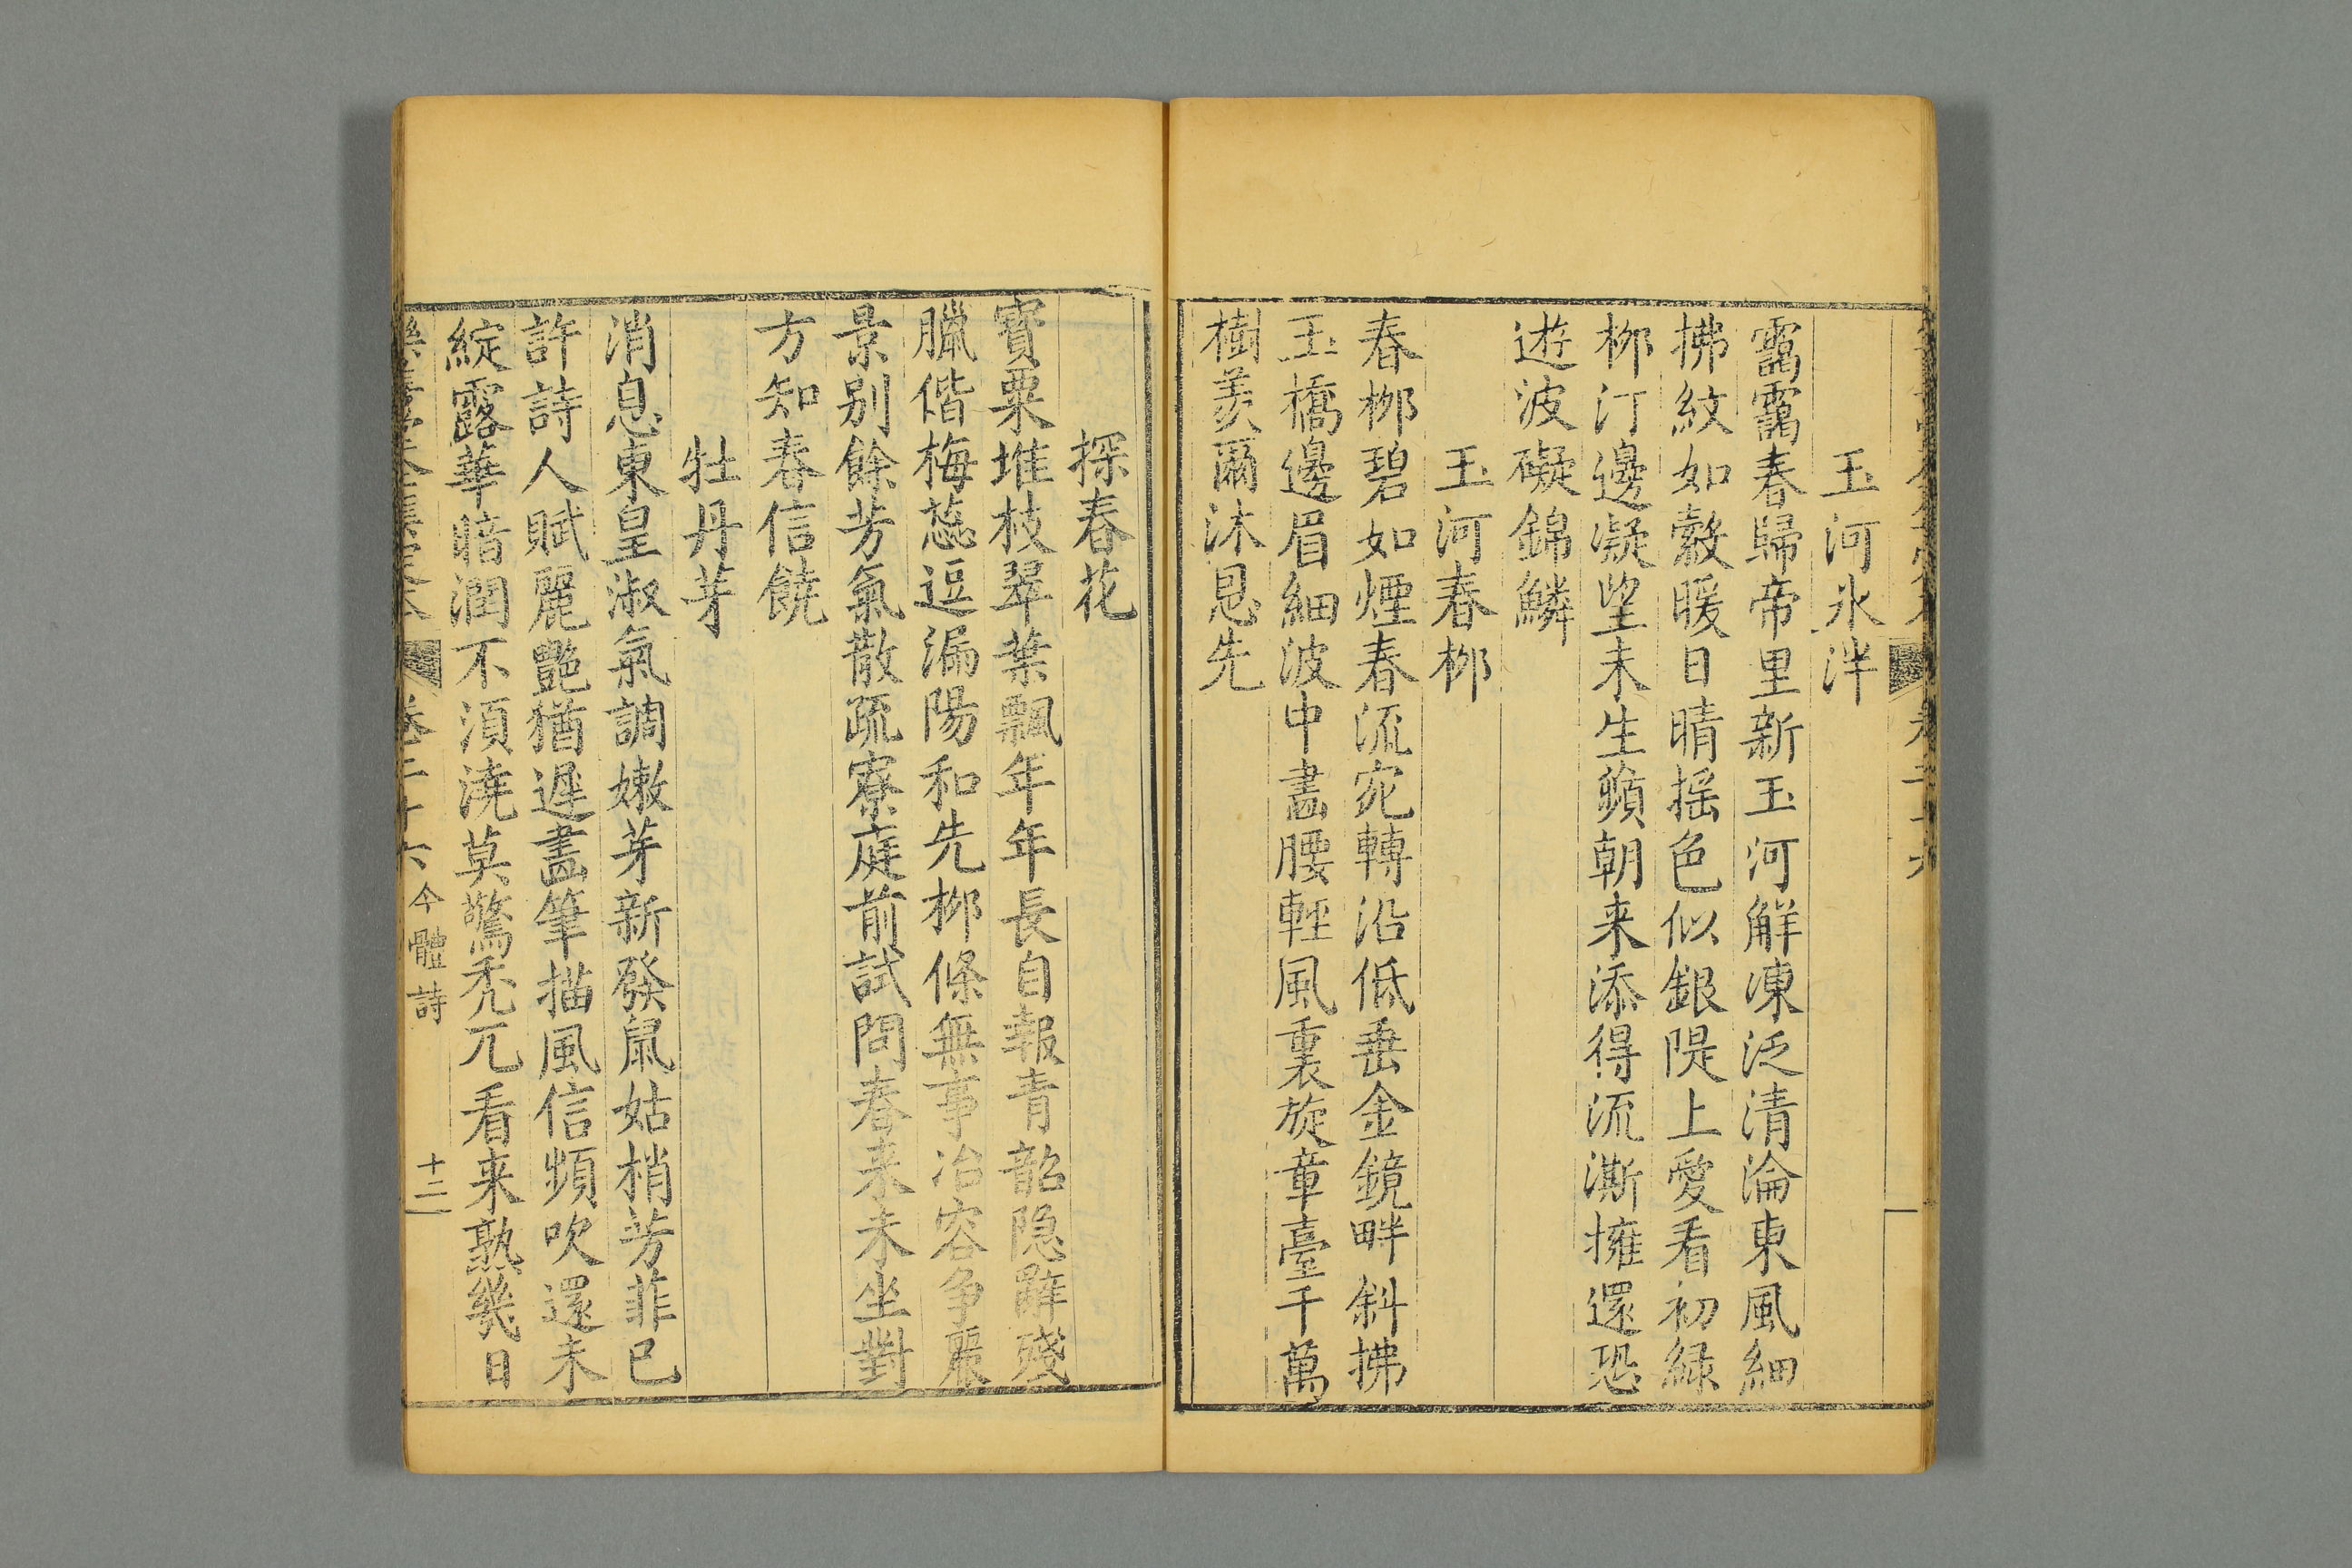 玉河氷泮
靄靄春歸帝里新玉河觧凍泛清淪東風細
拂紋如縠暖日晴揺色似銀隄上愛看初綠
栁汀邊凝望未生蘋朝来添得流澌擁還恐
遊波礙錦鱗
玉河春栁
春栁碧如煙春流宛轉沿低垂金鏡畔斜拂
玉橋邊眉細波中畵腰輕風裏旋章臺千萬
樹羨爾沐恩先
探春花
寶粟堆枝翠葉飄年年長自報青韶隐辭殘
臘偕梅蕊逗漏陽和先栁條無事冶容争麗
景别餘芳氣散疏寮庭前試問春来未坐對
方知春信饒
牡丹芽
消息東皇淑氣調嫩芽新發鼠姑梢芳菲已
許詩人賦麗艷猶遲畵筆描風信頻吹還未
綻露華暗潤不須澆莫驚秃兀看来熟幾日
卷二十六 今體詩 十二